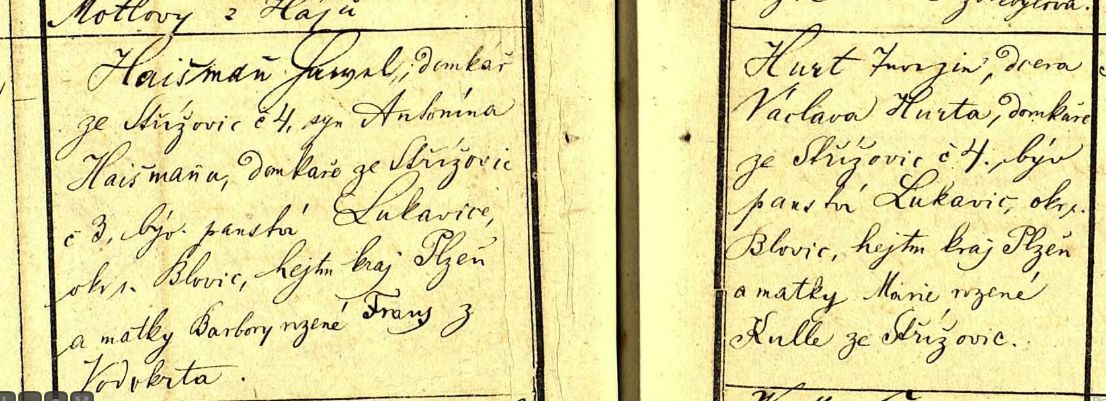 Motlovy z Hájů
Haišmaň Pavel, domkář
ze Střížovic č 4, syn Antonína
Haišmaňa, domkaře ze Střížovic
č 3, býv. panství Lukavice,
okrs. Blovic, hejtm kraj Plzeň
a matky Barbory rozené Frans z
Vodokrta.
Hurt, dcera
Václava Hurta, domkaře
ze Střížovic č 4., býv
panství Lukavic, okrs.
Blovic, hejtm kraj Plzeň
a matky Marie rozené
Kulle ze Střížovic.